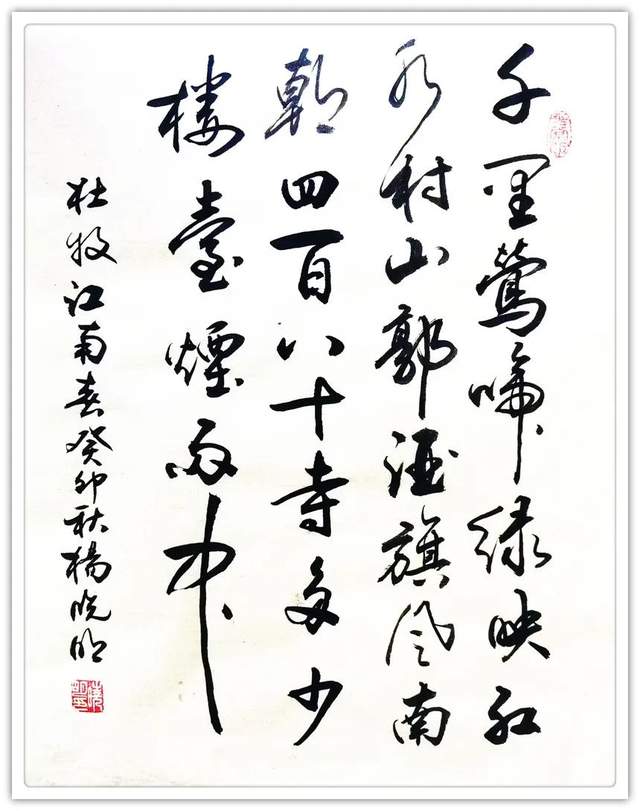 千里莺啼绿映红
水村山郭酒旗风南
朝四百八十寺多少
楼臺煙雨中
杜牧江南春癸卯秋楊晓明